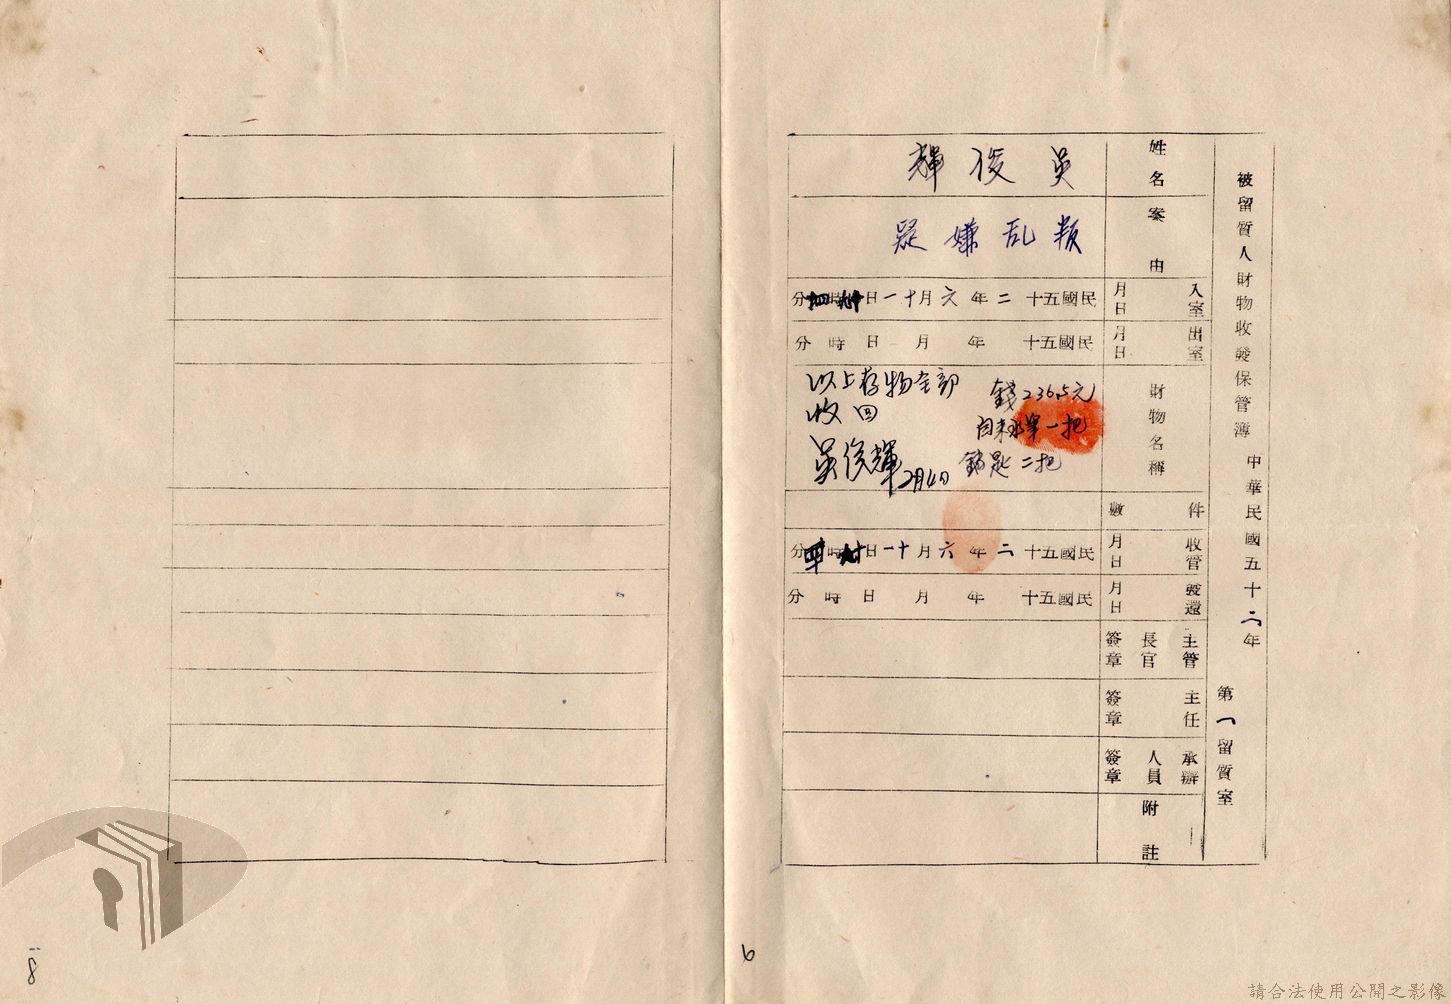 被留質人財物收發保管簿 中華民國五十二年 第一留質室
姓名 吳俊輝
案由 叛乱嫌疑
入室月日 民國五十二年六月十一日 時 分
出室月日 民國五十 年 月 日 時 分
財物名稱 錢236.5元
自來水筆一把
鎖匙二把
以上存物全部
收回
吳俊輝 2月4日
件數
收管月日 民國五十二年六月十一日 時 分
發還月日 民國五十 年 月 日 時 分
主管長官簽章
主任簽章
承辦人員簽章
附註
6
8
請合法使用公開之影像